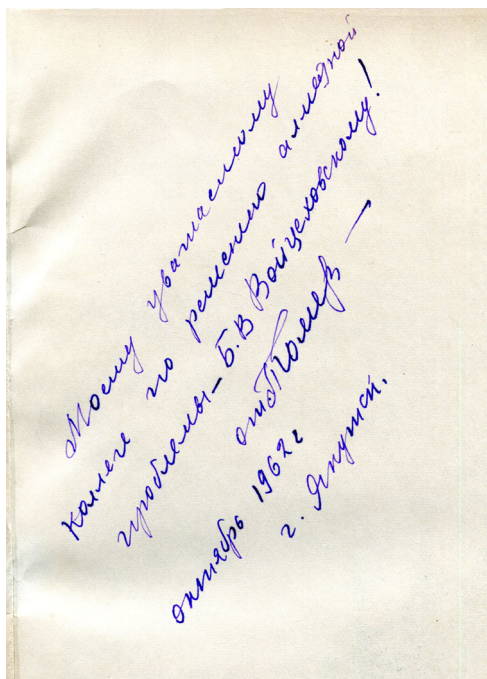 Моему уважаемому
коллеге по решению алмазной
проблемы – Б.В Войцеховскому!
от
октябрь 1962 г
г. Якутск.